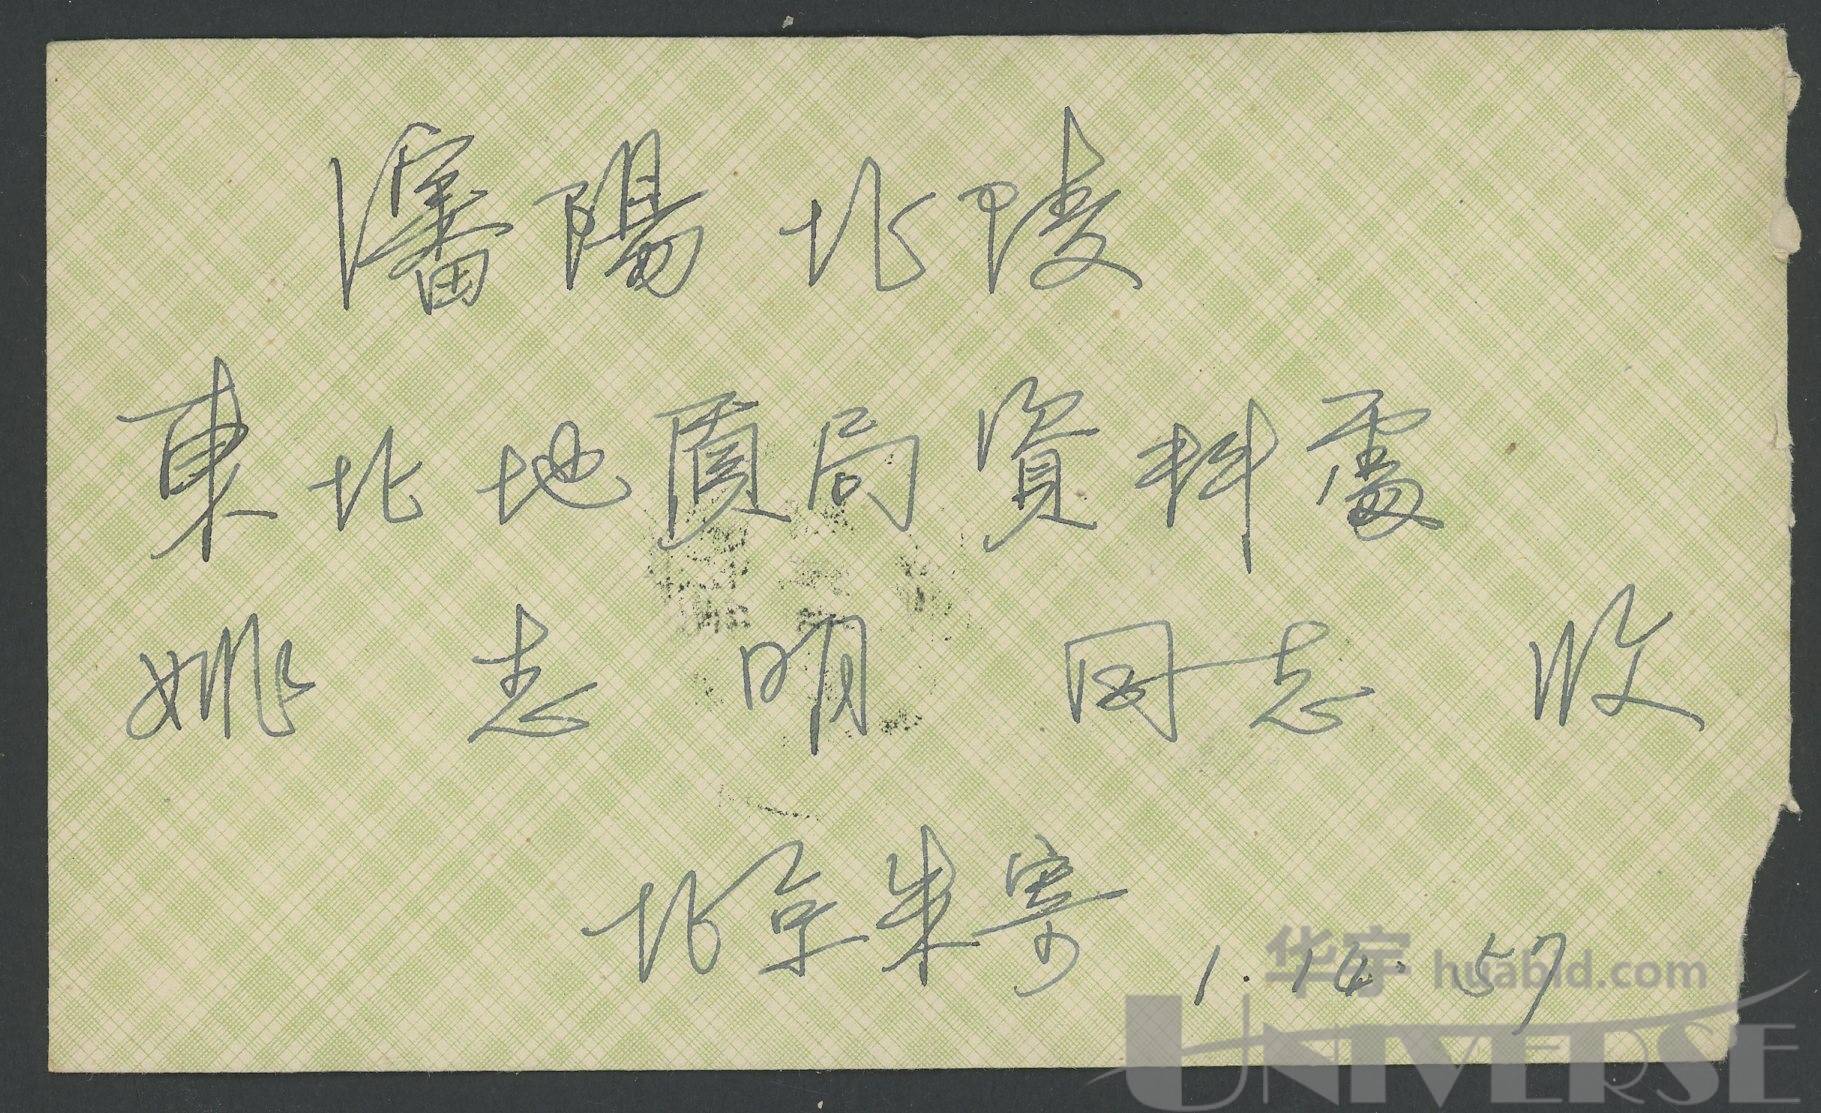 瀋陽北陵
東北地質局資料處
姚志明同志收
北京朱寄 1.14.57
华宇 huabid.com
UNIVERSE